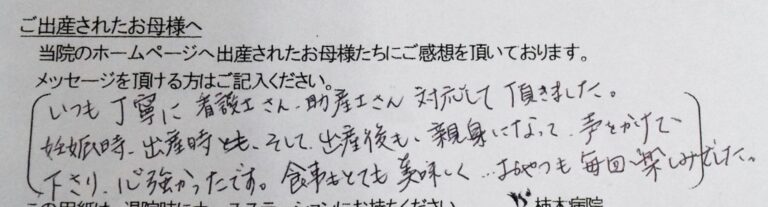 ご出産されたお母様へ
当院のホームページへ出産されたお母様たちにご感想を頂いております。
メッセージを頂ける方はご記入ください。
いつも丁寧に看護士さん、助産士さん対応して頂きました。
妊娠時、出産時とも、そして、出産後も、親身になって、声をかけて
下さり、心強かったです。食事もとても美味しく…おやつも毎回、楽しみでした。
この用紙は、退院時にナースステーションにお持ちください
柿木病院